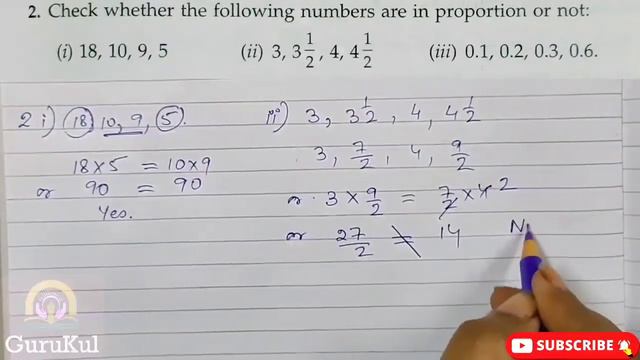 2. Check whether the following numbers are in proportion or not:
(i) 18, 10, 9, 5 (ii) 3, 3 1/2, 4, 4 1/2 (iii) 0.1, 0.2, 0.3, 0.6.
2 i) 18, 10, 9, 5.
18×5 = 10×9
or 90 = 90
Yes.
ii) 3, 3 1/2, 4, 4 1/2
3, 7/2, 4, 9/2
or 3 × 9/2 = 7/2 × 4 2
or 27/2 ≠ 14 N
GuruKul
SUBSCRIBE